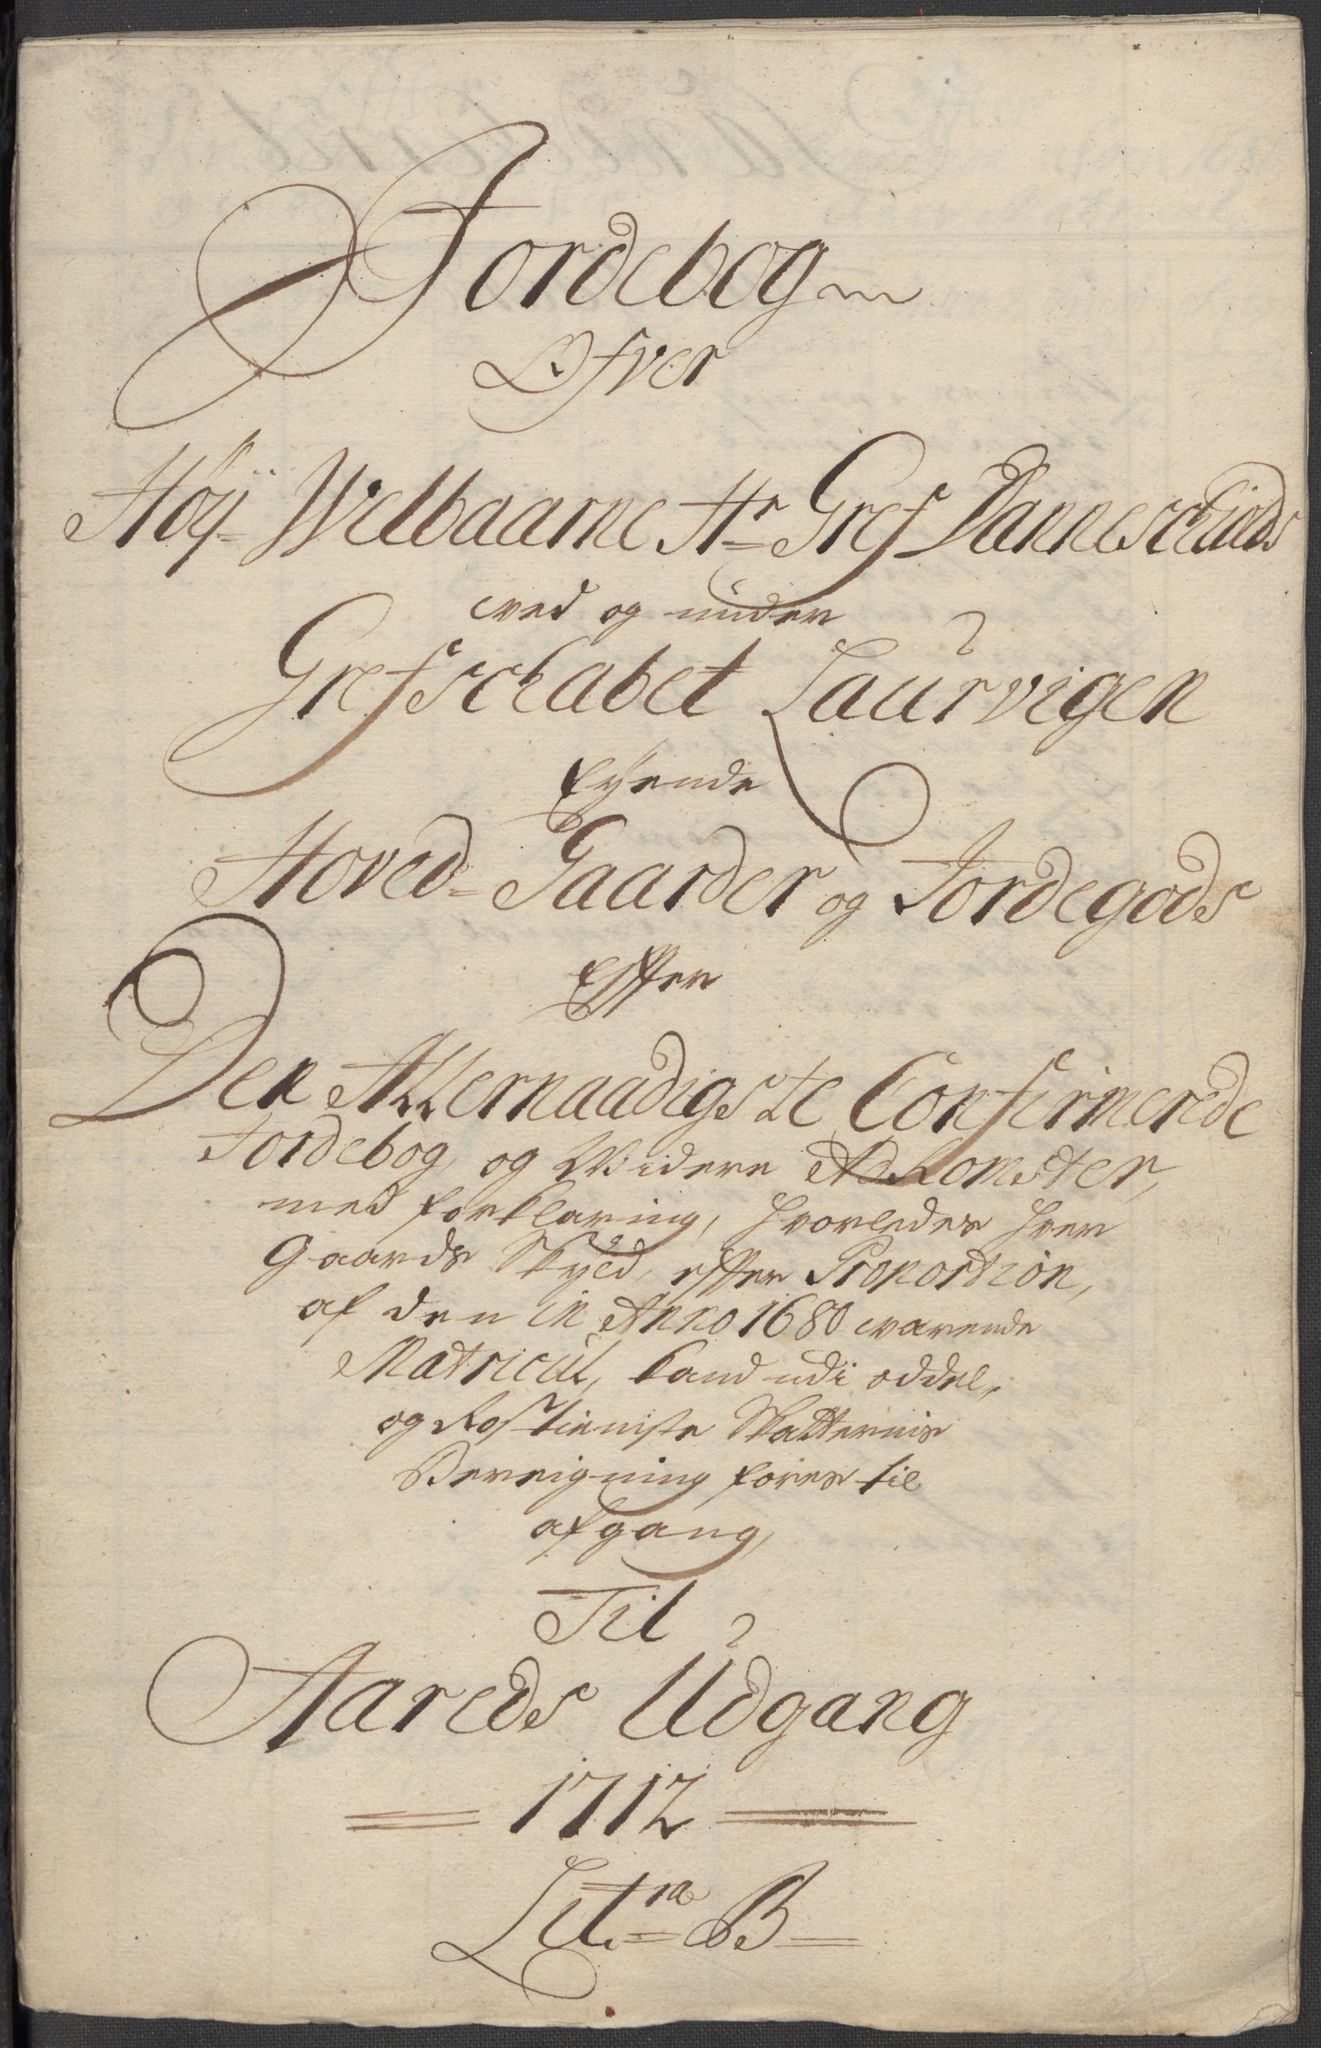 Jordebog
Ofver
Høÿ- Welbaarne Hr Gref Danneschiolds
ved og under
Grefschabet Laurvigen
Eÿende
Hoved- Gaarder og Jordegods
Effter
Den Allernaadigste Confirmerede
Jordebog, og Widere Adkomster,
med forklaring, hvorledes hver
Gaards Skyld, effter Proportion,
af den in Anno 1680 værende
Matricul, kand udi oddel,
og Rostieniste Skatternis
Bereigning føres til
afgang,
Til
Aareds Udgang
1712
Litra B